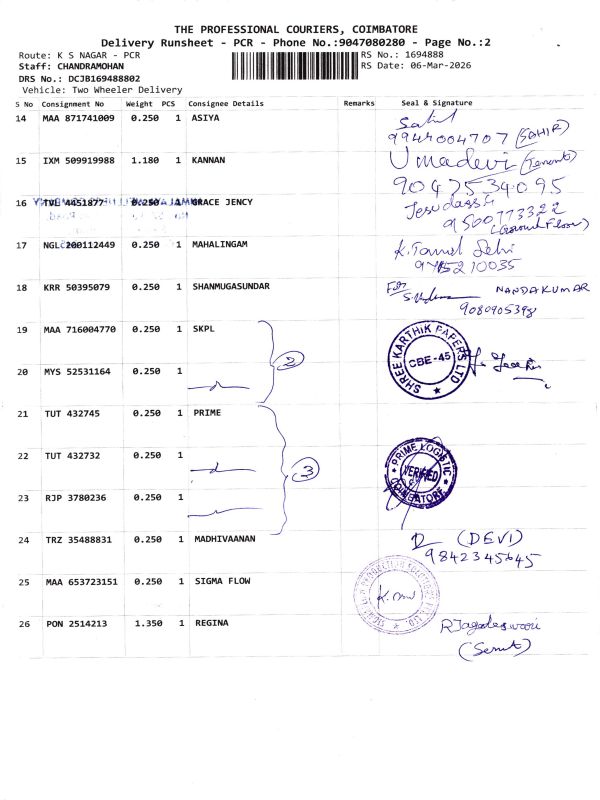 THE PROFESSIONAL COURIERS, COIMBATORE
Delivery Runsheet - PCR - Phone No.:9047080280 - Page No.:2
Route: K S NAGAR - PCR
RS No.: 1694888
Staff: CHANDRAMOHAN
RS Date: 06-Mar-2026
DRS No.: DCJB169488802
Vehicle: Two Wheeler Delivery
S No Consignment No Weight PCS Consignee Details Remarks Seal & Signature
14 MAA 871741009 0.250 1 ASIYA
9944004707 (SAHIR)
15 IXM 509919988 1.180 1 KANNAN Umadevi (Tenant)
9047534095
16 TVL 4451877 0.250 1 GRACE JENCY Jesudass
9500773322
(Ground Floor)
17 NGL 200112449 0.250 1 MAHALINGAM K. Tamil Selvi
9715210035
18 KRR 50395079 0.250 1 SHANMUGASUNDAR For NANDAKUMAR
9080905398
19 MAA 716004770 0.250 1 SKPL
SHREE KARTHIK PAPERS LTD
CBE-45
2
20 MYS 52531164 0.250 1
21 TUT 432745 0.250 1 PRIME
22 TUT 432732 0.250 1
3
PRIME LOGISTIC
VERIFIED
COIMBATORE
23 RJP 3780236 0.250 1
24 TRZ 35488831 0.250 1 MADHIVAANAN (DEVI)
9842345645
25 MAA 653723151 0.250 1 SIGMA FLOW
26 PON 2514213 1.350 1 REGINA R Jagadeswari